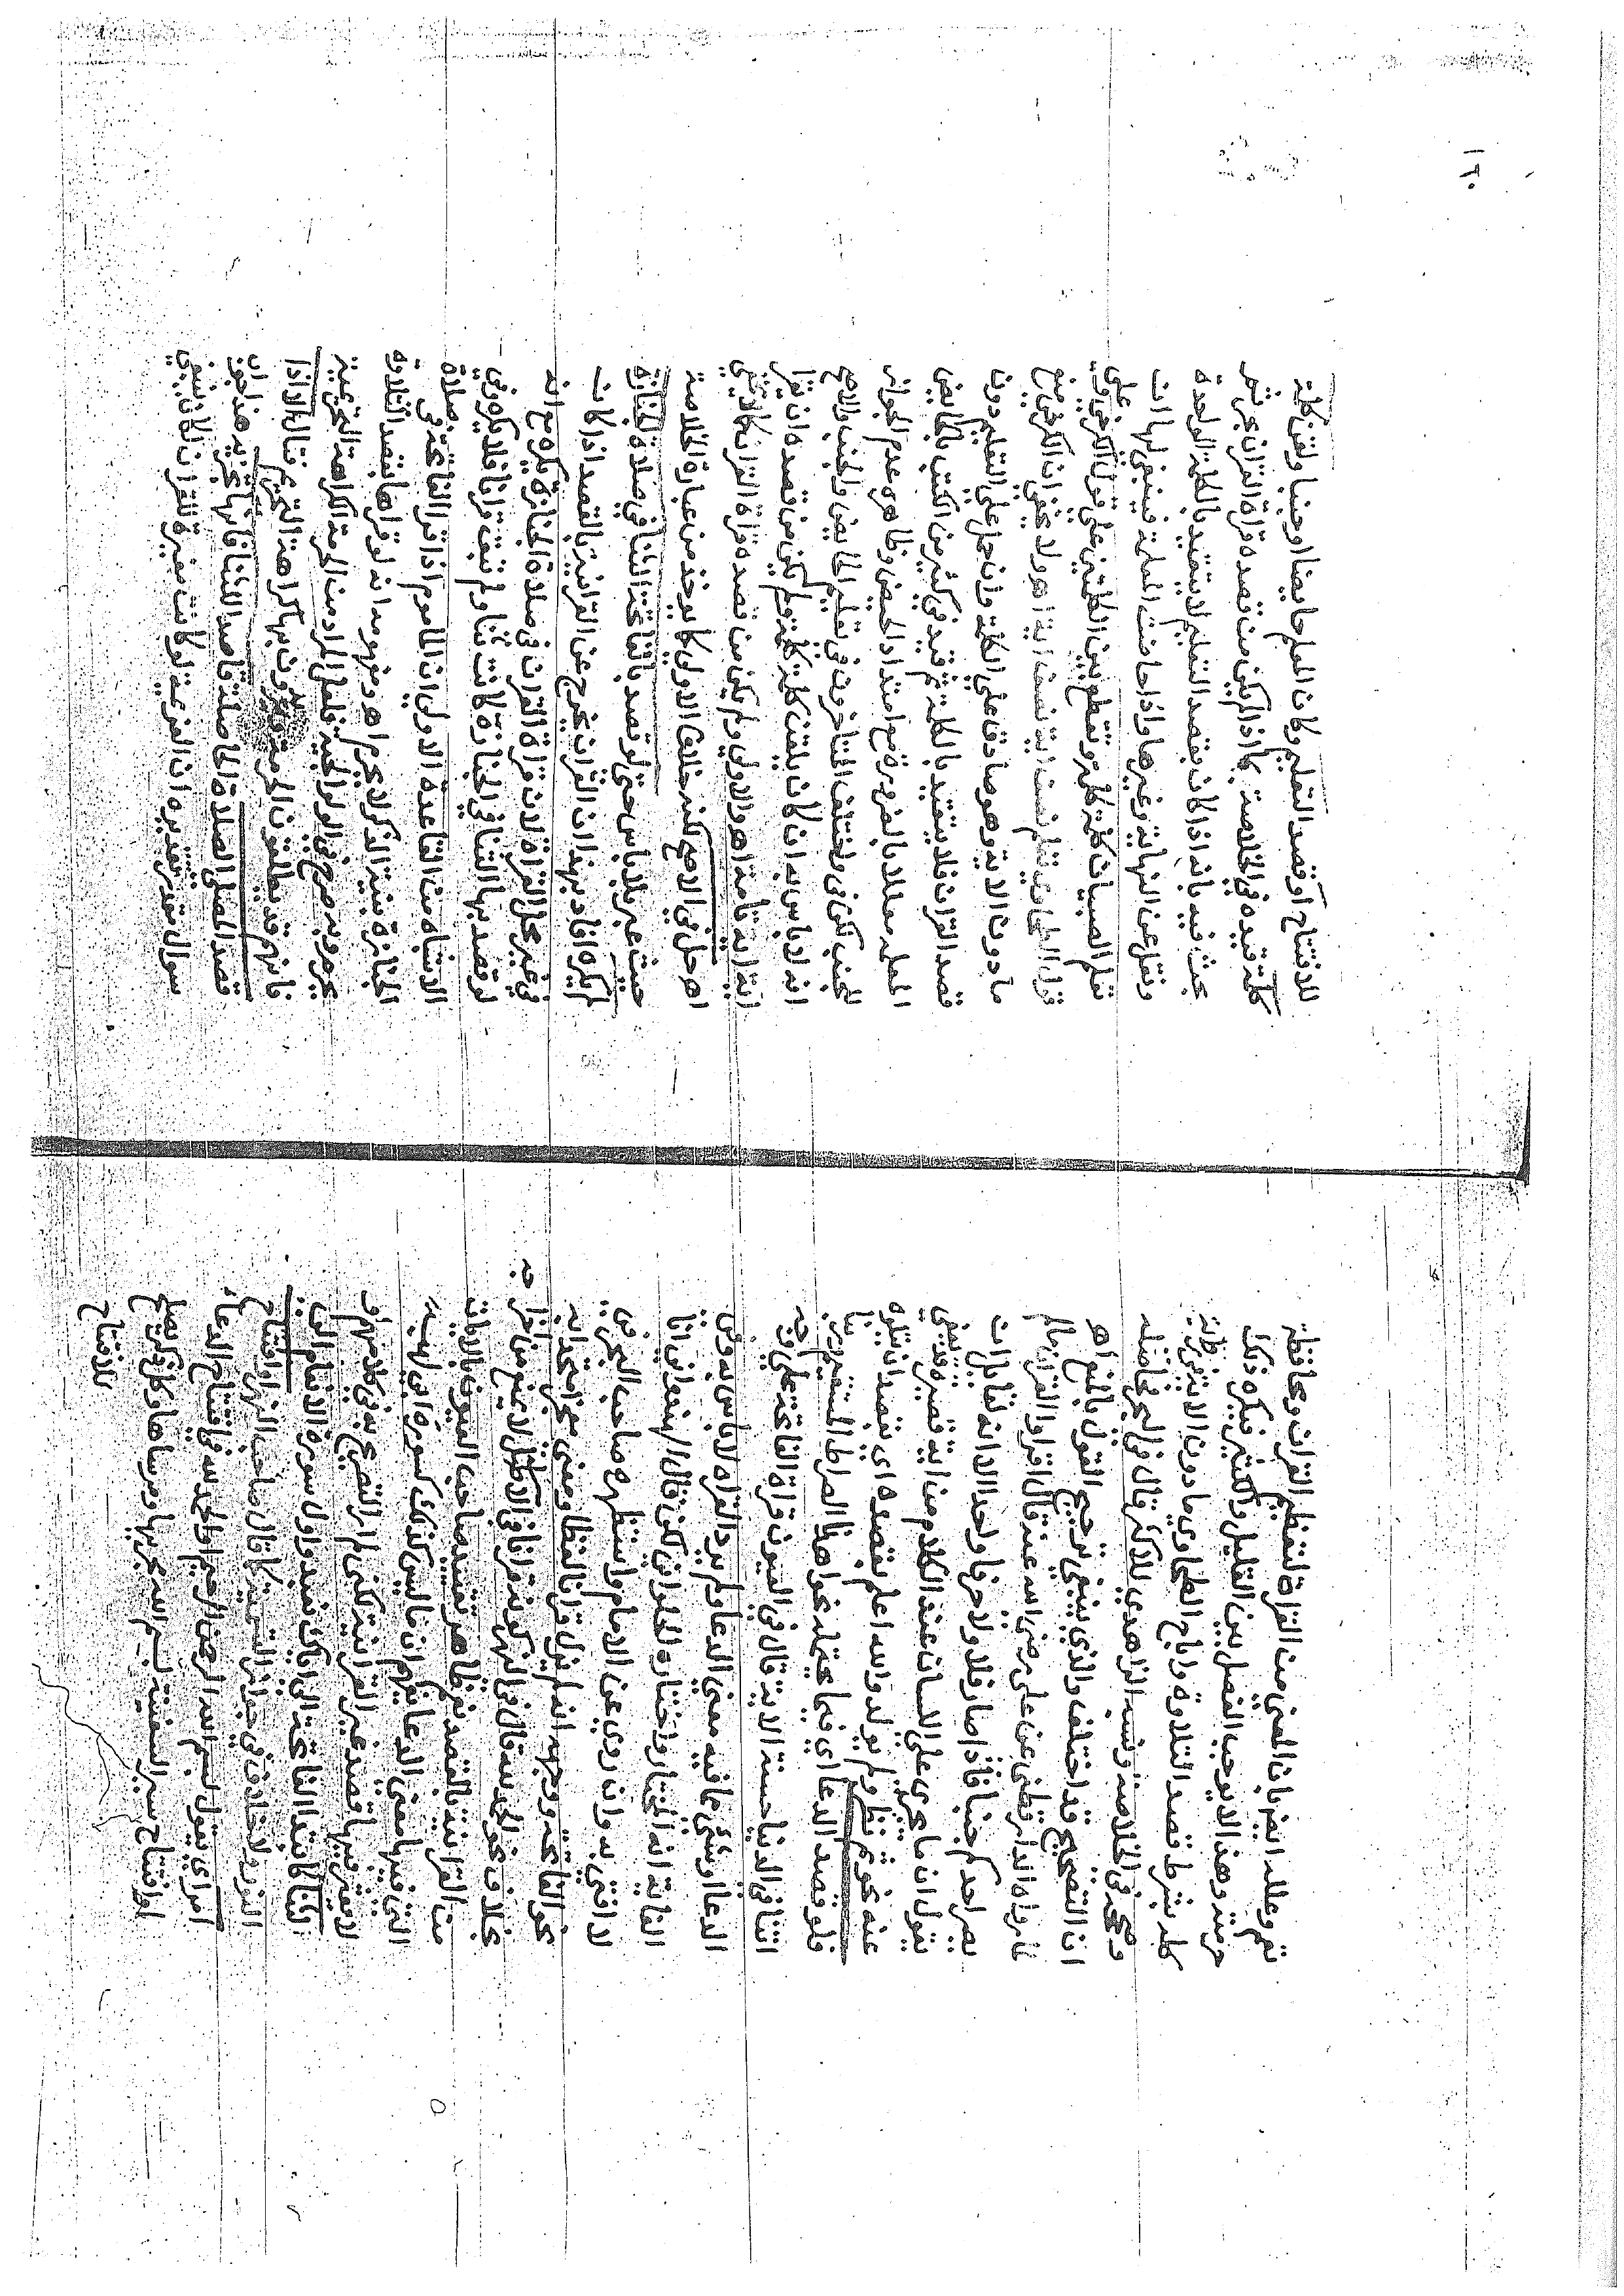 نعم وعلله ايضا بان المعنى من القراة لتعظيم القران ومحافظة
حرمته وهذا لا يوجب الفصل بين القليل والكثير فيكره ذلك
كله بشرط قصد التلاوة واباح الطحاوي ما دون الاية في رواية
وصححه في الخلاصة ونسبه الزاهدي للاكثر قال في البحر فحاصله
ان التصحيح قد اختلف والذي ينبغي ترجيح القول بالمنع اهـ
لما رواه الدارقطني عن علي رضي الله عنه قال اقراوا القران ما لم
يصر احدكم جنبا فاذا صار فلا ولا حرفا واحدا الا انه لقائل ان
يقول ان ما يجري على اللسان عند الكلام من اية قصيرة
عنه نحو ثم نظر ولم يولد والله اعلم بقصده اي بقصد ان يتلوه
فلو قصد الدعا اي فيما يحتمله نحو اهدنا الصراط المستقيم ربنا
اتنا في الدنيا حسنة الاية قال في العيون قراة الفاتحة على وجه
الدعا او شيئ مما فيه معنى الدعا ولم يرد القراة لا باس به وفي
الغاية انه المختار واختاره الحلواني لكن قال الهندواني انا
لا افتي به وان روي عن الامام واستظهره صاحب البحر في
نحو الفاتحة ووجهه انه لم يزل قرانا لفظا ومعنى معجزا متحدا به
بخلاف نحو الحمد لله قال في النهر كونه قرانا في الاصل لا يمنع من اخراجه
من القرانية بالقصد نعم ظاهر تقييد صاحب العيون بالايات
التي فيها معنى الدعا يفهم ان ما ليس كذلك كسورة ابي لهب
لا يؤثر فيها قصد غير القرانية لكني لم ار التصريح به في كلامهم او
الثنا كابتدا الفاتحة الى اياك نعبد واول سورة الانعام الى
النور ولا خلاف في جواز التسمية كما قال صاحب النهر او افتتاح
امر اي بقول بسم الله الرحمن الرحيم او الحمد لله في افتتاح الدعاء
او افتتاح سير السفينة بسم الله مجريها ومرساها وكل ذكر يصلح
للافتتاح
١٢٠
للافتتاح او قصد التعليم وكان المعلم حايضا او جنبا ولقن كلمة
كلمة قيده في الخلاصة بما اذا لم يكن من قصده قراة القران بحر ثم
بحث فيه بانه اذا كان بقصد التعليم لا يتقيد بالكلمة الواحدة
ونقل عن النهاية وغيرها واذا حاضت المعلمة فينبغي لها ان
تعلم الصبيان كلمة كلمة وتقطع بين الكلمتين على قول الكرخي وعلى
قول الطحاوي تعلم نصف اية نصف اية اهـ ولا يخفى ان الكرخي يمنع
ما دون الاية وهو صادق على الكلمة وان حمل على التعليم دون
قصد القران فلا يتقيد بالكلمة ثم قيد في كثير من الكتب بالحايض
المعلمة معللا بالضرورة مع امتداد الحيض وظاهره عدم الجواز
للجنب لكن في واختلف المتاخرون في تعليم الحايض والجنب والاصح
انه لا باس به ان كان يلقن كلمة كلمة ولم يكن من قصده ان يقرا
اية تامة اهـ والاولى ولم يكن من قصده قراة القران كما لا يخفى
اهـ حل في الاصح لكنه خلاف الاولى كما يوخذ من عبارة الخلاصة
حيث عبر بلا باس حتى لو قصد بالفاتحة الثنا في صلاة الجنازة
لم يكره افاد بهذا ان القران يخرج عن القرانية بالقصد اذا كان
في غير محل القراة لان قراة القران في صلاة الجنازة تكره حتى انه
لو قصد بها الثنا في الجنازة كانت ثنا ولم تبق قرانا فلا يكره وفي
الاشباه من القاعدة الاولى ان الماموم اذا قرا الفاتحة في صلاة
الجنازة بنية الذكر لا يحرم اهـ ومفهومه انه لو قراها بقصد التلاوة
يحرم وبه صرح في الولوالجية ولعل المراد من الحرمة الكراهة التحريمية
فانهم قد يطلقون الحرمة ويريدون بها كراهة التحريم فتامل الا اذا
قصد المصلي الصلاة الثنا فانها تجزيه هذا جواب
سوال مقدر تقديره ان العزيمة لو كانت مغيرة للقران لكان ينبغي